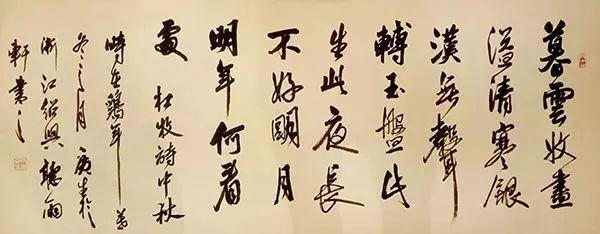 暮雲收盡
溢清寒銀
漢無聲
轉玉盤此
生此夜長
不好明月
明年何看
處 杜牧詩中秋
時在鷄年
冬月 於
浙江紹興聽雨
軒書之